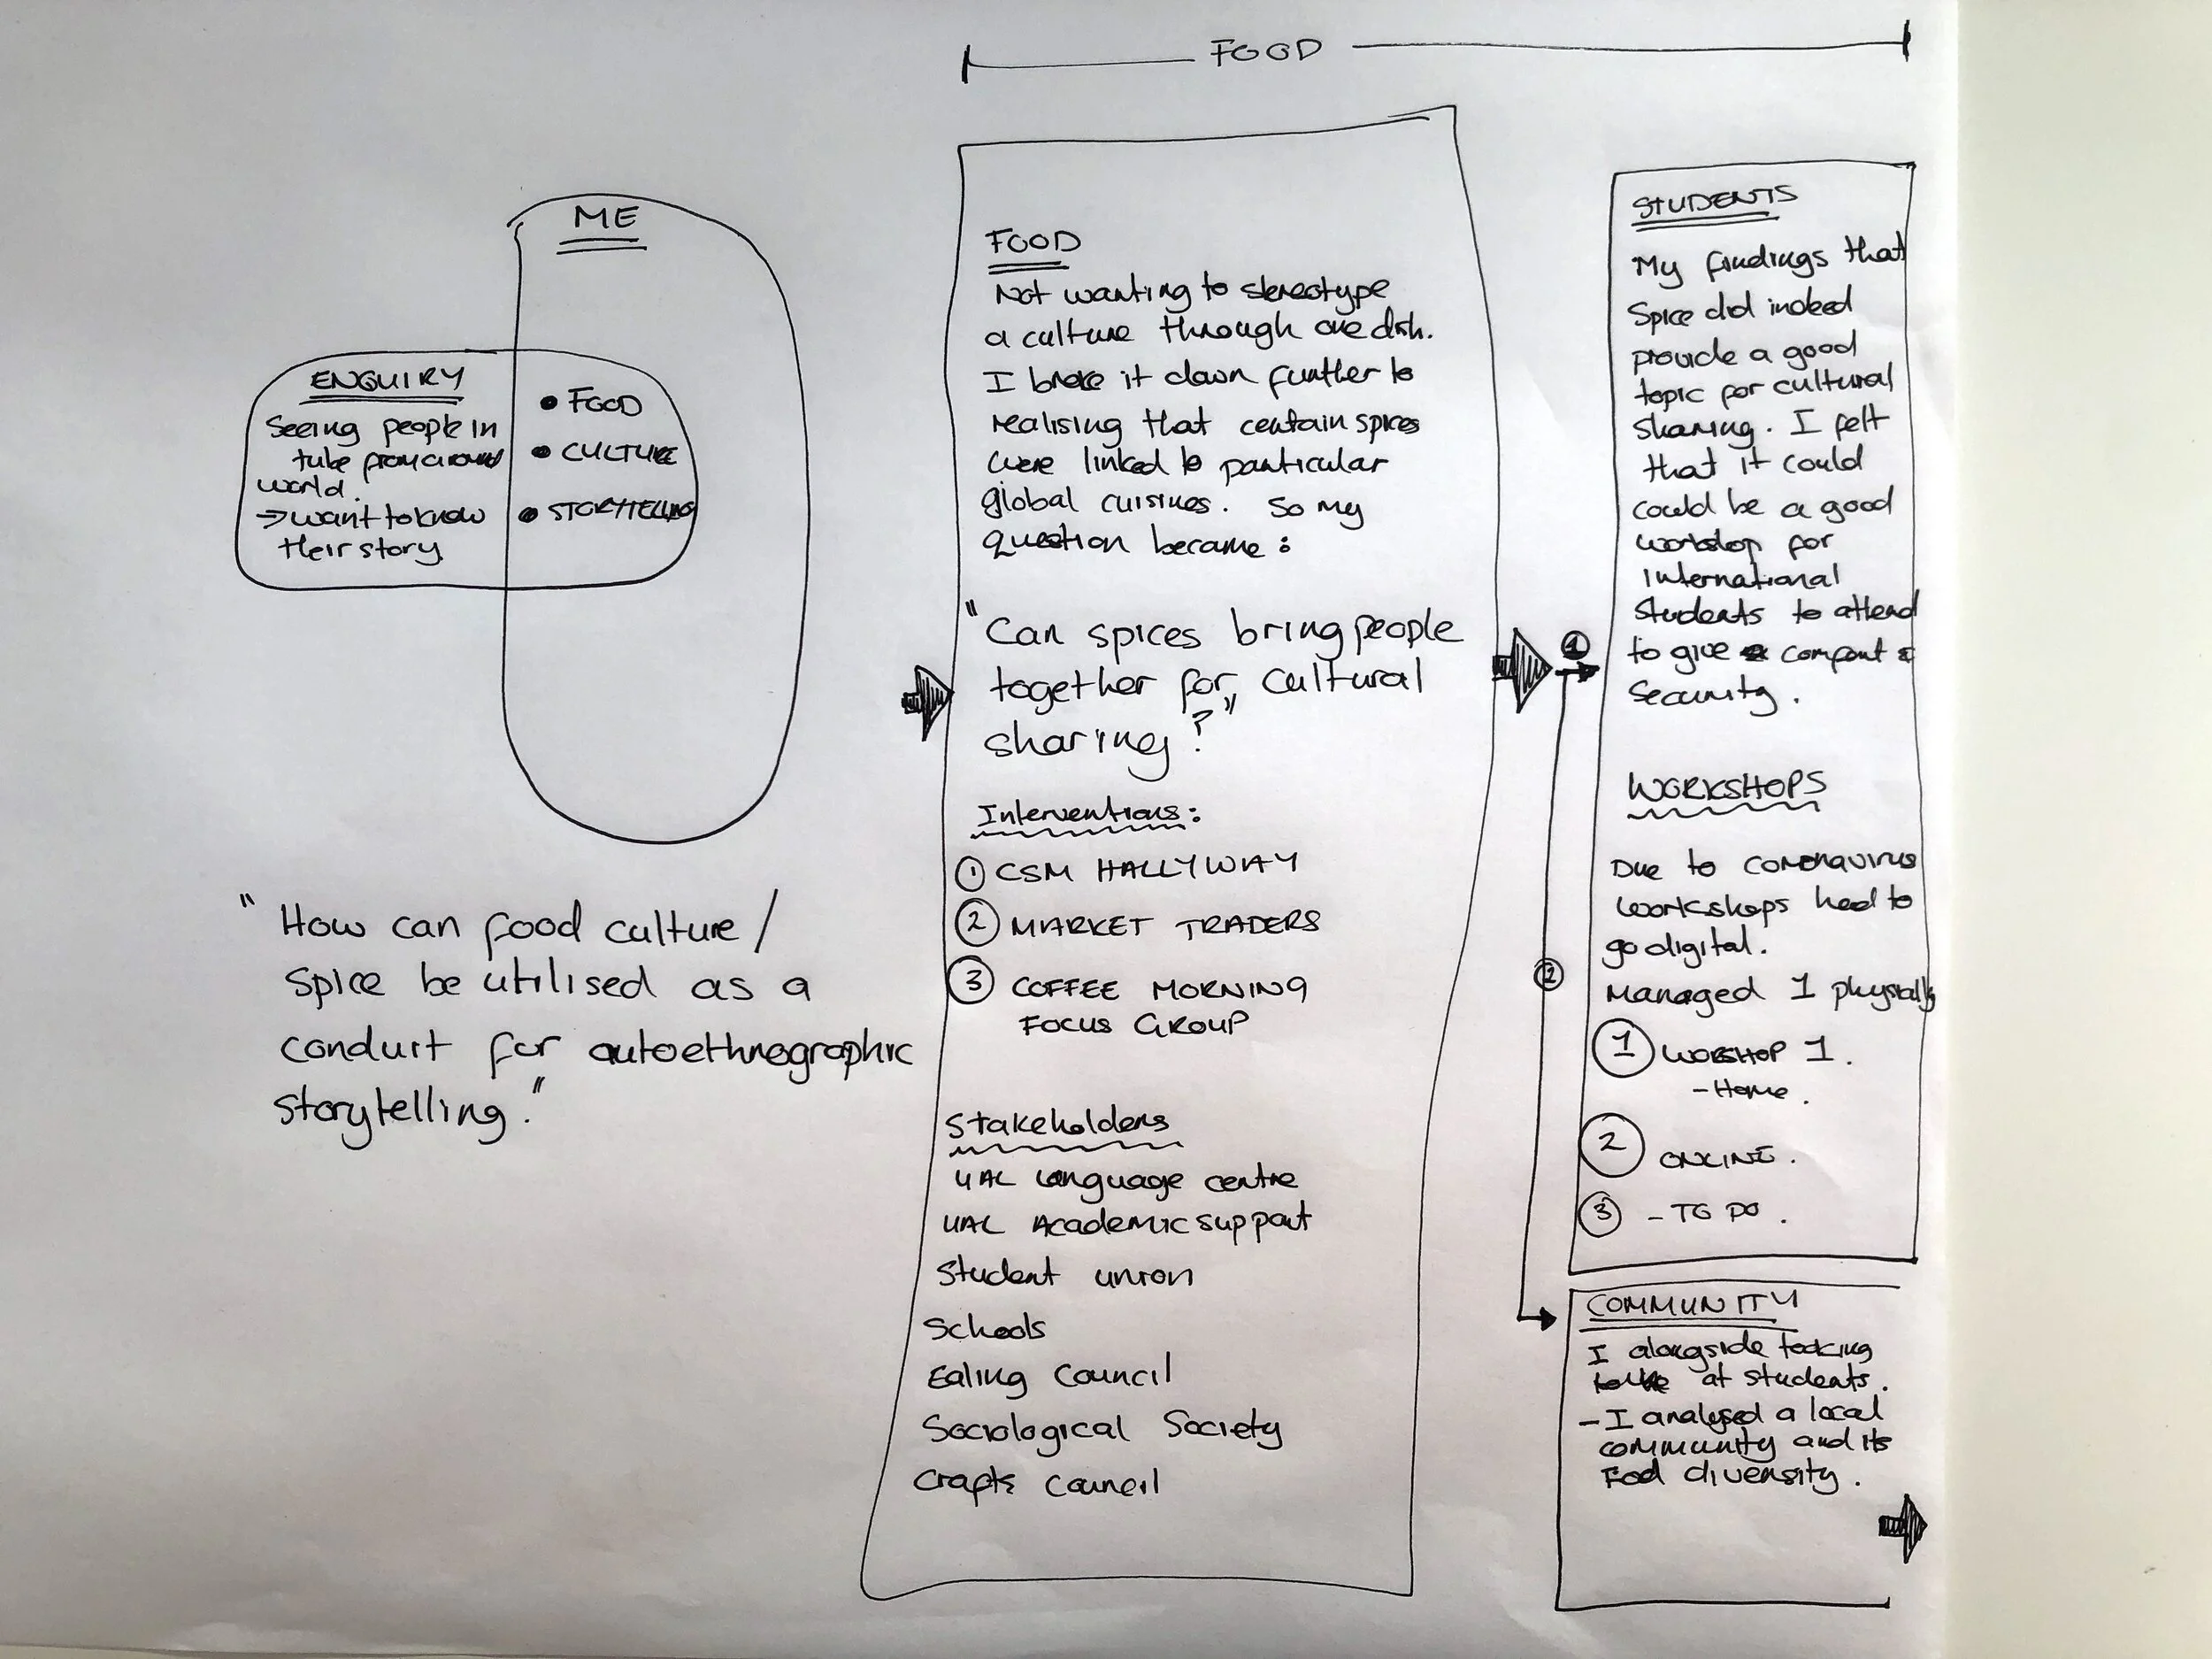 FOOD
ME
ENQUIRY
Seeing people in
tube from around
world.
→ want to know
their story
• FOOD
• CULTURE
• STORYTELLING
"How can food culture/
spice be utilised as a
conduit for autoethnographic
storytelling."
FOOD
Not wanting to stereotype
a culture through one dish.
I broke it down further to
realising that certain spices
were linked to particular
global cuisines. So my
question became:
"Can spices bring people
together for cultural
sharing?"
Interventions:
1 CSM HALLYWAY
2 MARKET TRADERS
3 COFFEE MORNING
FOCUS GROUP
Stakeholders
UAL Language centre
UAL Academic support
Student union
Schools
Ealing Council
Sociological Society
Crafts Council
1
2
STUDENTS
My findings that
Spice did indeed
provide a good
topic for cultural
sharing. I felt
that it could
could be a good
workshop for
international
students to attend
to give comfort &
security.
WORKSHOPS
Due to coronavirus
workshops had to
go digital.
Managed 1 physically
1 WORSHOP 1.
- Home.
2 ONLINE.
3 - TO DO.
COMMUNITY
I alongside looking
at students.
- I analysed a local
community and its
Food diversity.